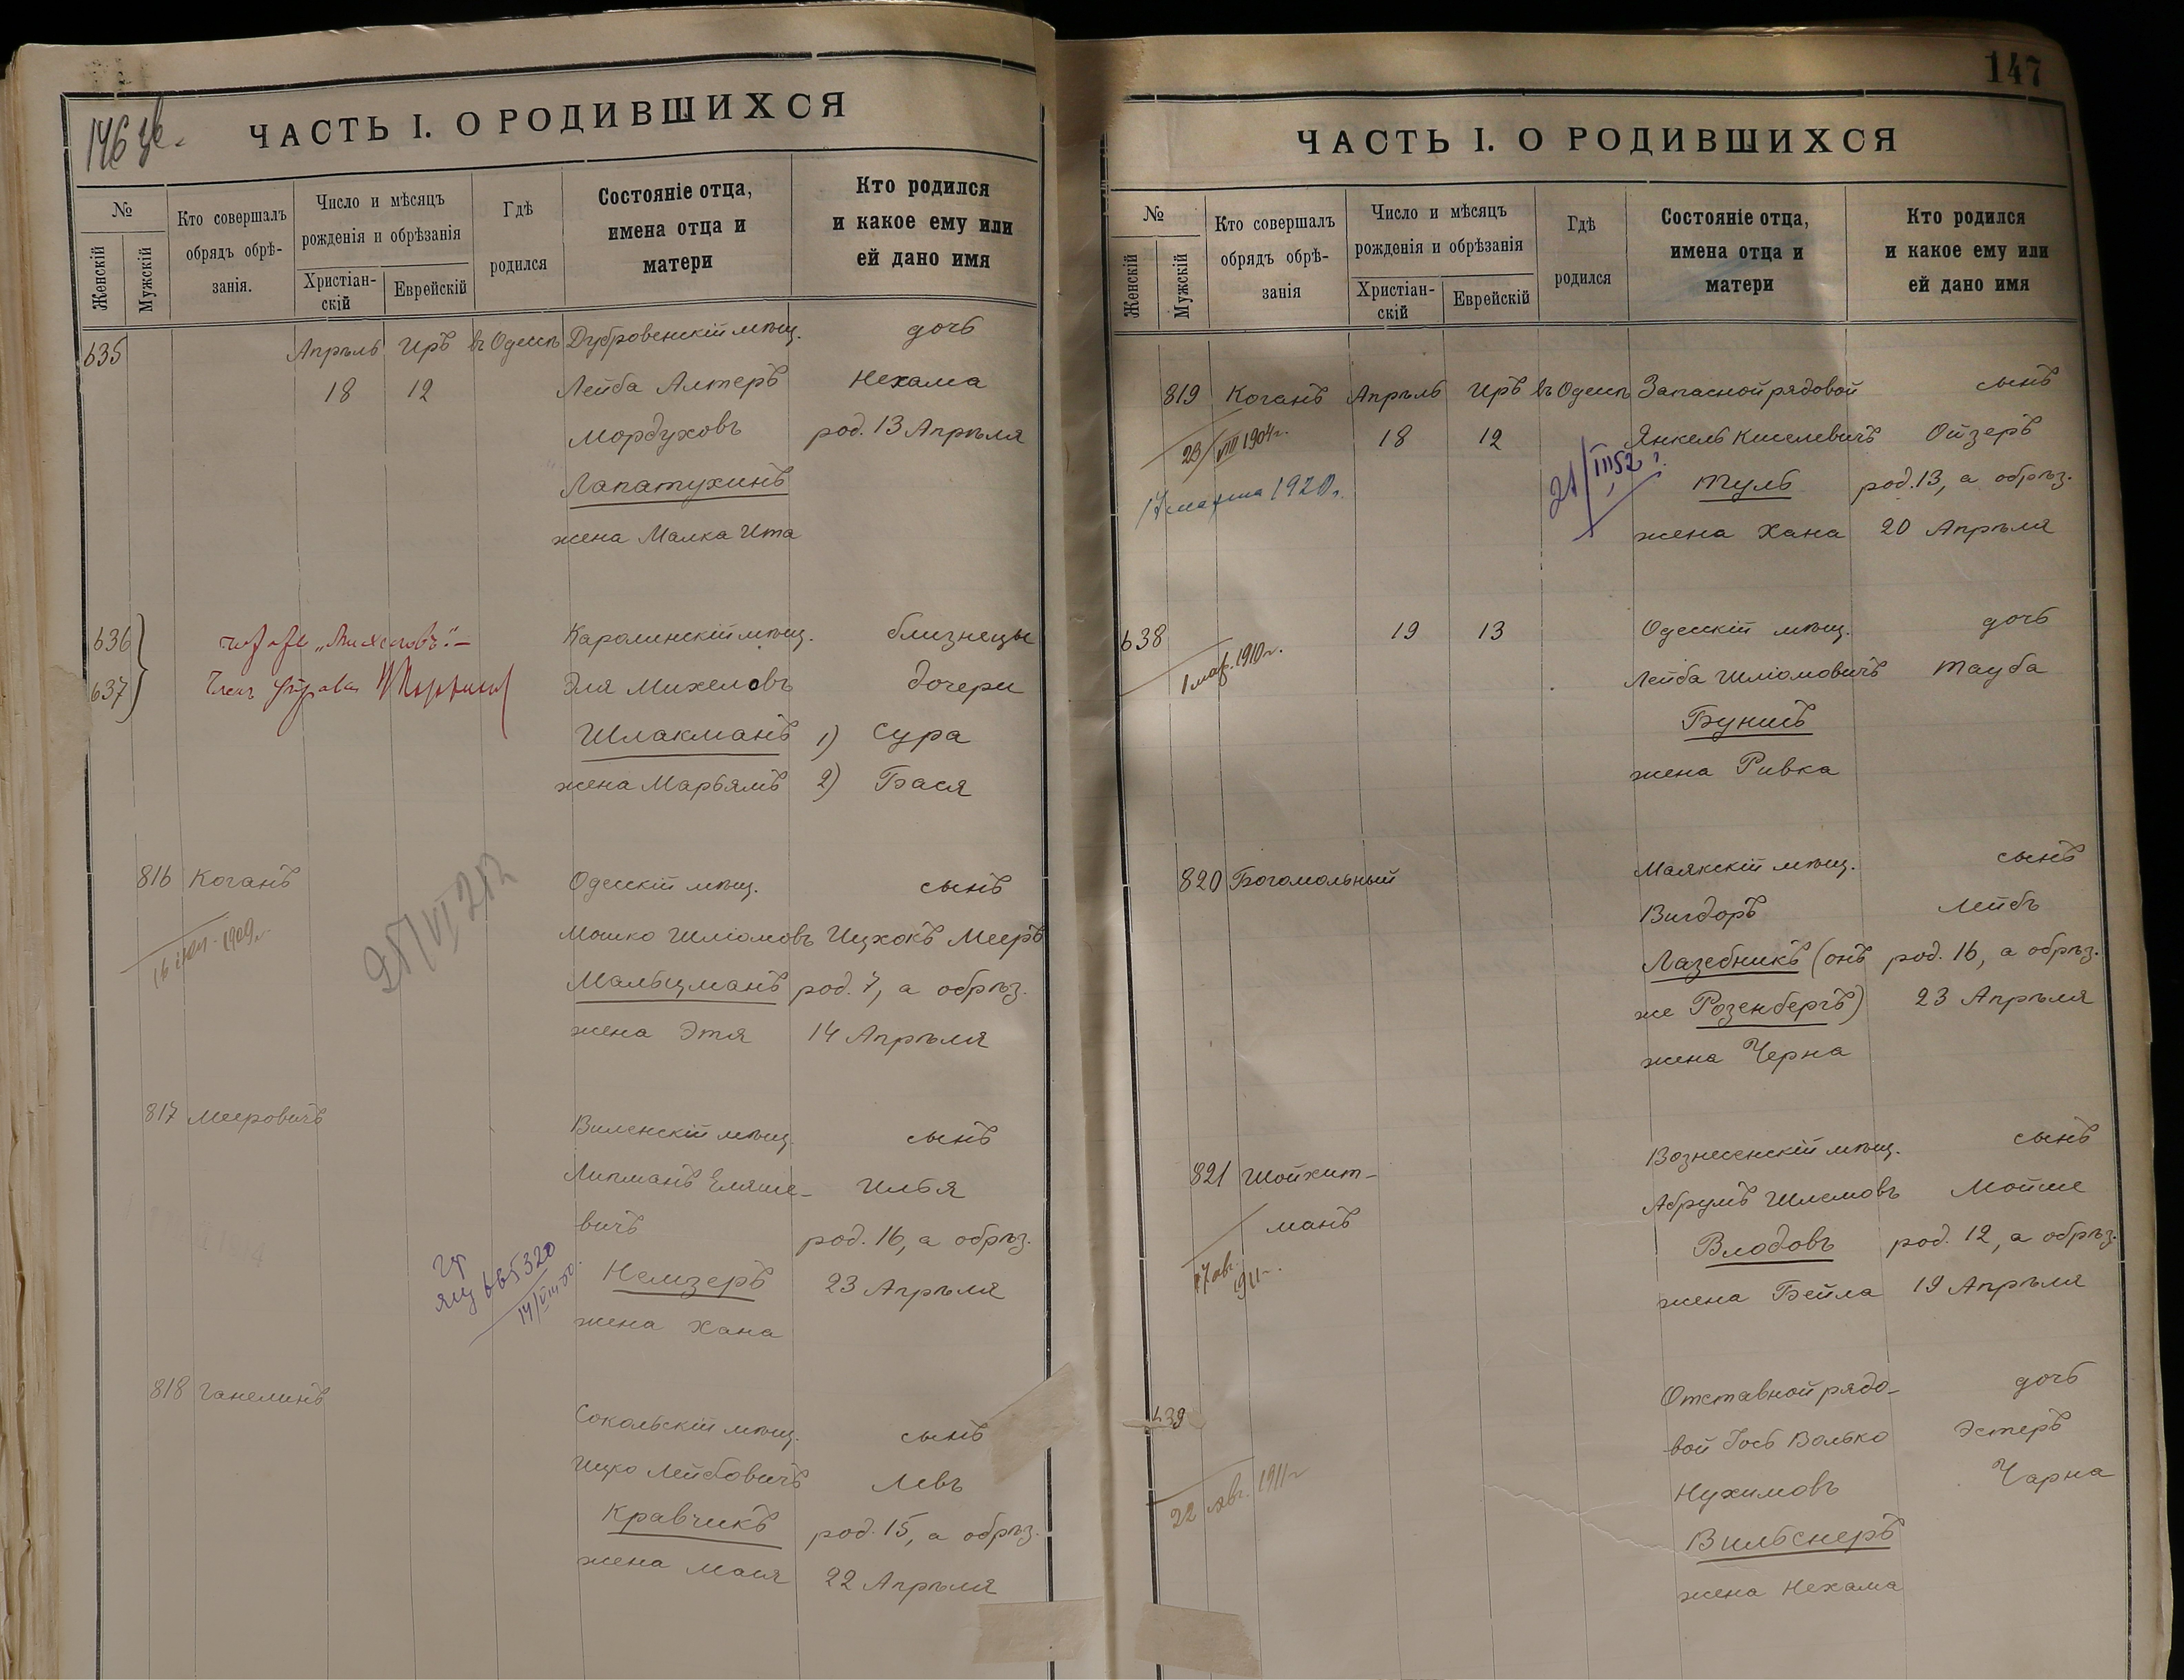 146 об.
ЧАСТЬ I. О РОДИВШИХСЯ
№
Женскій
Мужскій
Кто совершалъ
обрядъ обрѣ-
занія.
Число и мѣсяцъ
рожденія и обрѣзанія
Христіан-
скій
Еврейскій
Гдѣ
родился
Состояніе отца,
имена отца и
матери
Кто родился
и какое ему или
ей дано имя
635 Апрѣль Иръ въ Одессѣ Дубровенскій мѣщ. дочь
18 12 Лейба Алтеръ Нехама
Мордуховъ род. 13 Апрѣля
Лапатухинъ
жена Малка Ита
636 „Михеловъ“.— Каролинскій мѣщ. близнецы
637 Членъ Эля Михеловъ дочери
Шлакманъ 1) Сура
жена Марьямъ 2) Бася
816 Коганъ Одесскій мѣщ. сынъ
1909г. Мошко Шліомовъ Ицхокъ Мееръ
Мальцманъ род. 7, а обрѣз.
жена Этя 14 Апрѣля
817 Мееровичъ Виленскій мѣщ. сынъ
Липманъ Еляше- Илья
вичъ род. 16, а обрѣз.
Немзеръ 23 Апрѣля
665320
14/VIII-50.
жена Хана
818 Ганелинъ Сокольскій мѣщ. сынъ
Ицко Лейбовичъ Левъ
Кравчикъ род. 15, а обрѣз.
жена Мася 22 Апрѣля
147
ЧАСТЬ I. О РОДИВШИХСЯ
№
Женскій
Мужскій
Кто совершалъ
обрядъ обрѣ-
занія
Число и мѣсяцъ
рожденія и обрѣзанія
Христіан-
скій
Еврейскій
Гдѣ
родился
Состояніе отца,
имена отца и
матери
Кто родился
и какое ему или
ей дано имя
819 Коганъ Апрѣль Иръ въ Одессѣ Запасной рядовой сынъ
23/VIII 1904г. 18 12 Янкель Киселевичъ Ойзеръ
17 марта 1920г. 21/III 52 г. Туль род. 13, а обрѣз.
жена Хана 20 Апрѣля
638 19 13 Одесскій мѣщ. дочь
1 мар. 1910г. Лейба Шліомовичъ Тауба
Бунисъ
жена Ривка
820 Богомольный Маякскій мѣщ. сынъ
Вигдоръ Лейбъ
Лазебникъ (онъ род. 16, а обрѣз.
же Розенбергъ) 23 Апрѣля
жена Черна
821 Шойхит- Вознесенскій мѣщ. сынъ
манъ Абрумъ Шлемовъ Мойше
17 авг. 1911г. Влодовъ род. 12, а обрѣз.
жена Бейла 19 Апрѣля
639 Отставной рядо- дочь
вой Іось Волько Эстеръ
22 авг. 1911г Нухимовъ Чарна
Вильснеръ
жена Нехама